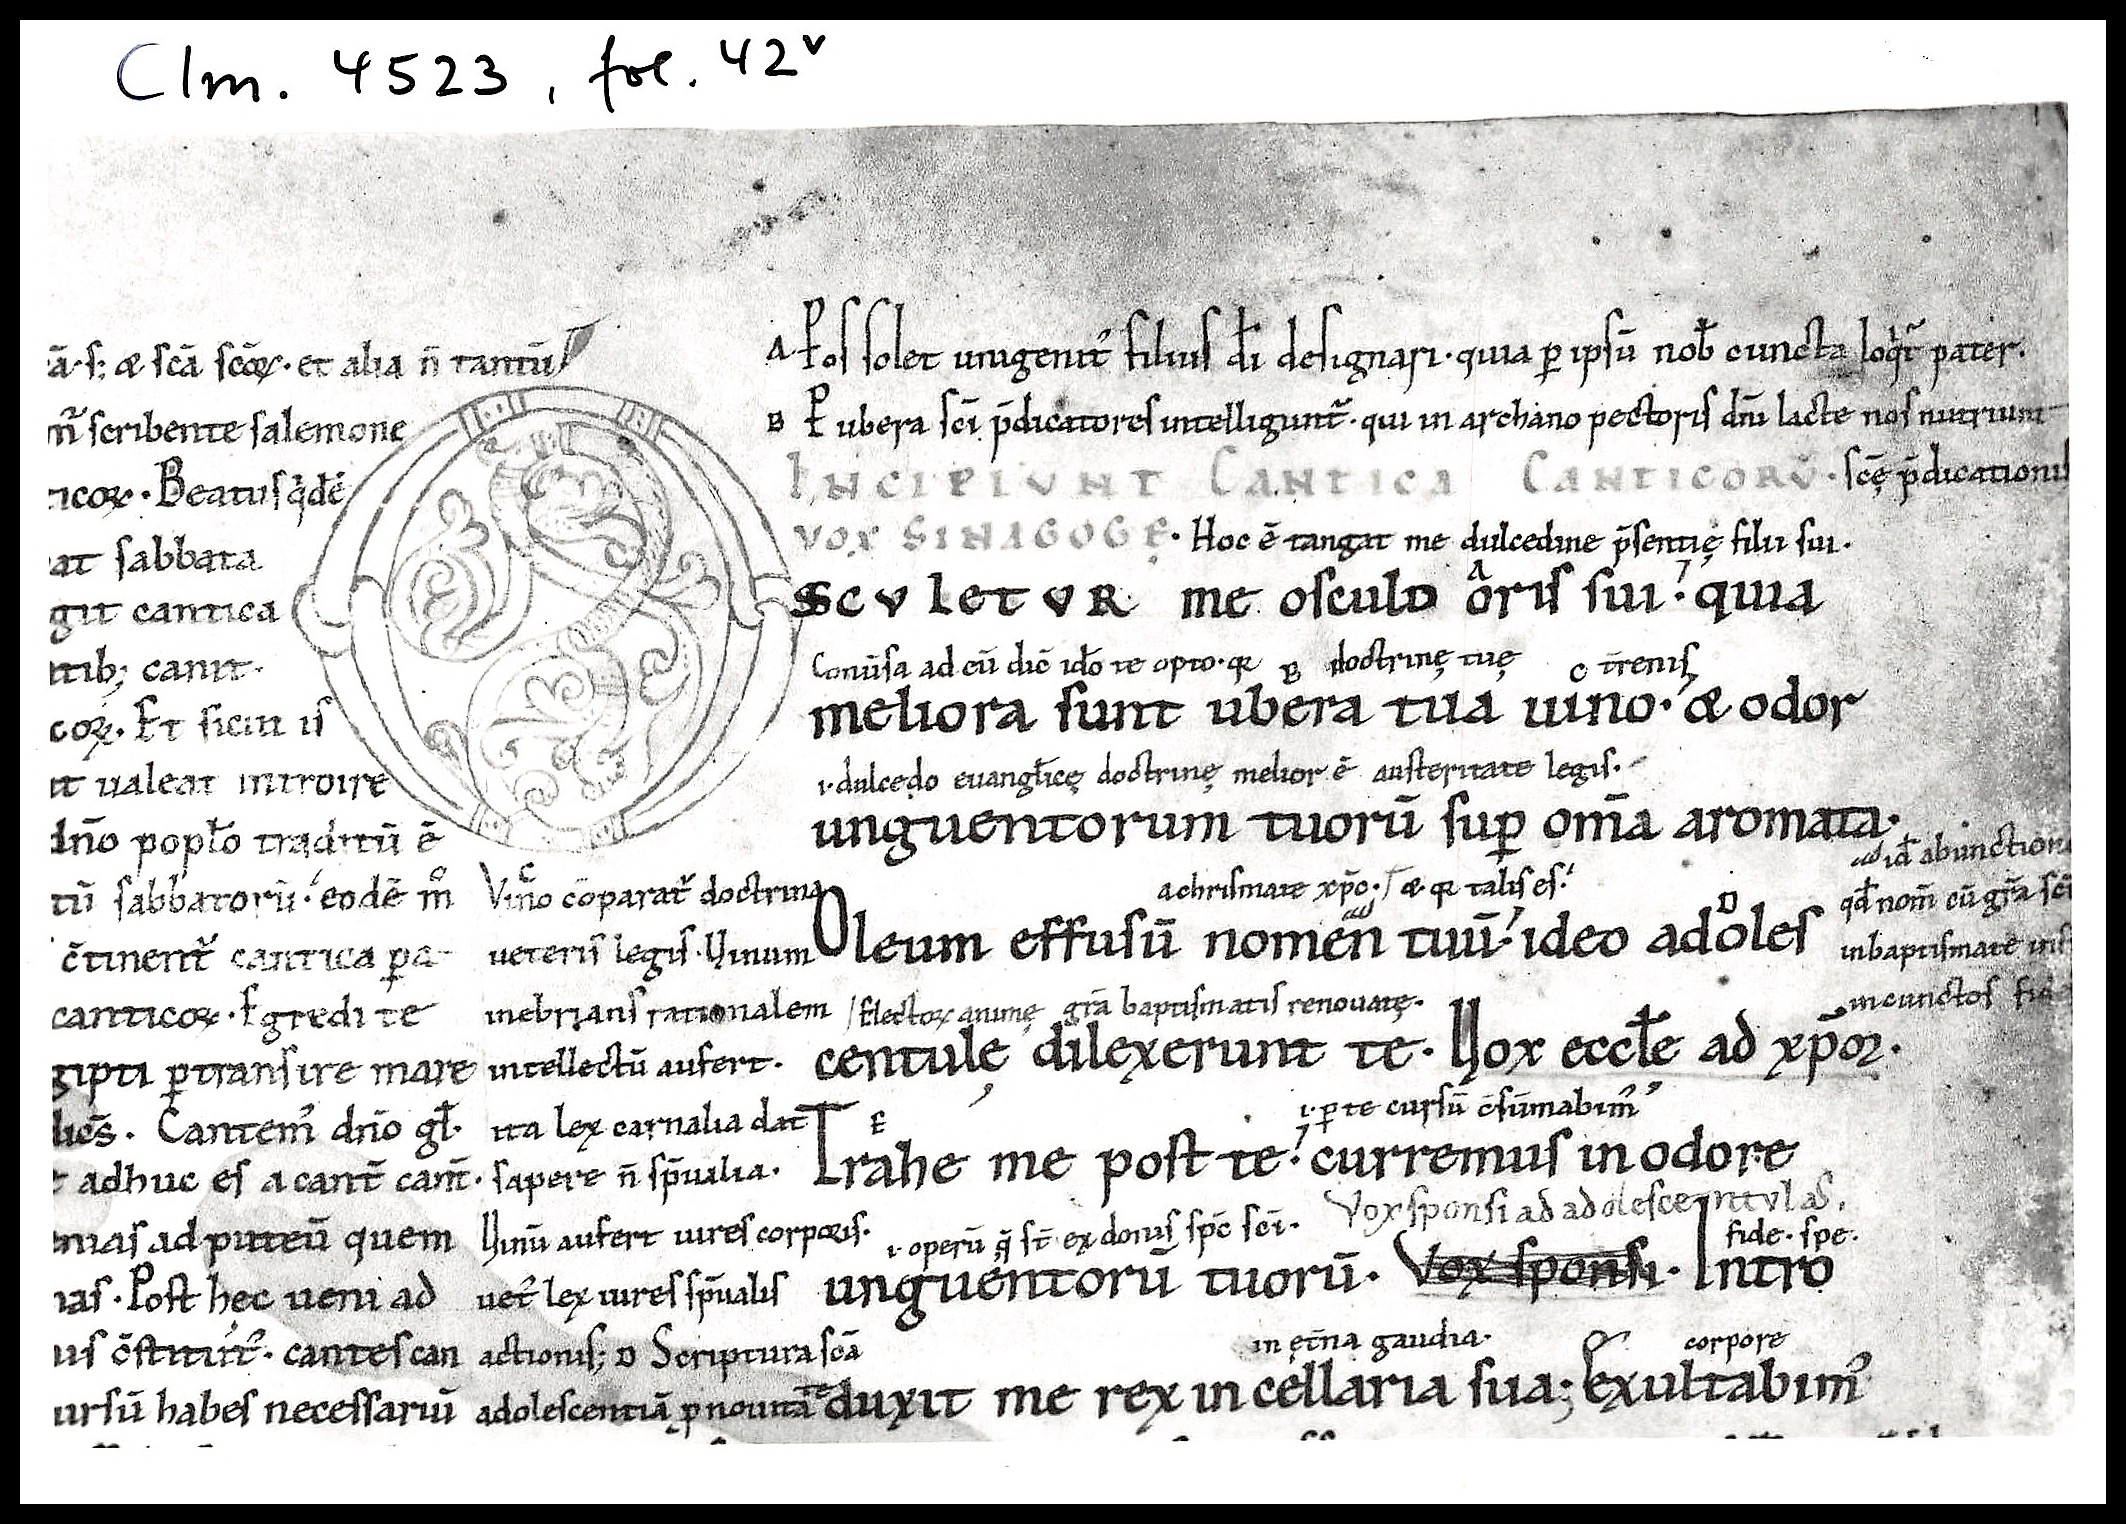 Clm. 4523, fol. 42v
ā·s; æ scā scōꝝ· et alia n̄ tantū
scribente salemone
ticoꝝ· Beatus
at sabbata
git cantica
ntib; canit·
coꝝ· Et sicut is
it ualeat introire
dn̄o popl̄o traditū ē
tū sabbatorū· eodē m̊
c̄tinent᷑ cantica ꝑa
canticoꝝ· Egredi te
gipti ꝑtransire mare
Cantem᷒ dn̄o gl̄·
adhuc es a cant̄ cant̄·
enias ad puteū quem
nas· Post hęc ueni ad
us c̄stitui᷑· cantes can
ursū habes necessariū
A· P os solet unigenit᷒ filius dī designari· quia ꝑ ipsū nob̄ cuncta loqt᷑ pater·
B P ubera scī p̄dicatores intelligunt᷑· qui in archano pectoris dnī lacte nos nutriunt
INCIPIUNT CANTICA CANTICORŪ· scę p̄dicationis
VOX SINAGOGĘ· Hoc ē tangat me dulcedine p̄sentię filii sui·
OSCVLETVR me osculo oris sui· quia
A
Conūsa ad eū dic̄ ido te opto· B doctrinę tuę C t̄renis
meliora sunt ubera tua uino· æ odor
i· dulcedo euangl̄icę doctrinę melior ē austeritate legis·
unguentorum tuorū suꝑ om̄a aromata·
id̄ ab unctione
C
Vino cōparat᷑ doctrina
ueteris legis· Uinum
inebrians rationalem
intellectū aufert·
ita lex carnalia dat
sapere n̄ sp̄ualia·
Uinū aufert uires corporis·
uet᷒ lex uires sp̄ualis
actionis; D Scriptura scā
adolescentiā ꝑ nouitatē
a chrismate xp̄c· æ talis es·
D
Oleum effusū nomen tuū· ideo adoles
qd̄ nom̄ cū gr̄a scī
in baptismate
in cunctos
Electoꝝ animę gr̄a baptismatis renouatę·
centulę dilexerunt te· Uox eccl̄e ad xp̄or·
i· ꝑ te cursū c̄sūmabim᷒
E
Trahe me post te· curremus in odore
i· operū q̄ st̄ ex donis sp̄c scī· Vox sponsi ad adolescentvlas·
fide· spe·
unguentorū tuorū· Vox sponsi· Intro
in ęt̄na gaudia· corpore
duxit me rex in cellaria sua; Exultabim᷒